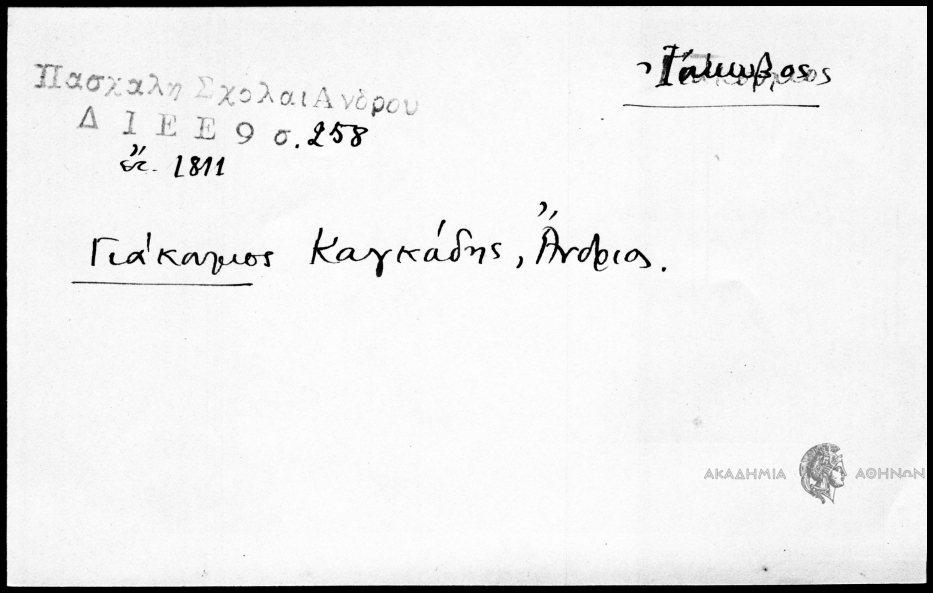 Ἰάκωβος
Πασχαλη Σχολαι Ανδρου
Δ Ι Ε Ε 9 σ. 258
ἔτ. 1811
Γιάκαμος Καγκάδης, Ἄνδριος.
ΑΚΑΔΗΜΙΑ ΑΘΗΝΩΝ